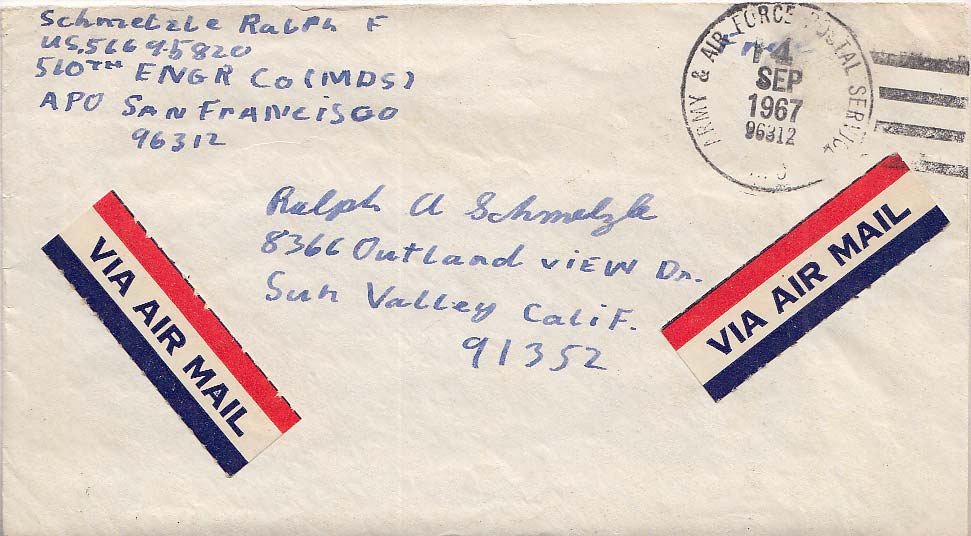 Schmelzle Ralph F
US.56695820
510TH ENGR Co (MDS)
APO SAN FRANCISCO
96312
ARMY & AIR FORCE POSTAL SERVICE
SEP
1967
96312
Ralph A Schmelzle
8366 Outland VIEW Dr.
Sun Valley CaliF.
91352
VIA AIR MAIL
VIA AIR MAIL